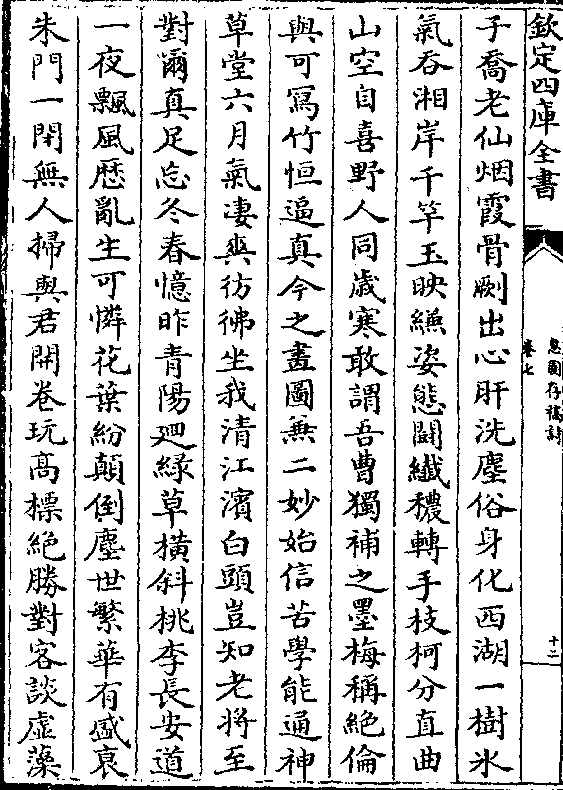 欽定四庫全書
息園存稿詩
卷七
十二
子喬老仙烟霞骨劚出心肝洗塵俗身化西湖一樹氷
氣吞湘岸千竿玉映縑姿態鬬纎穠轉手枝柯分直曲
山空自喜野人同歲寒敢謂吾曹獨補之墨梅稱絶倫
與可冩竹恒逼真今之畫圖兼二妙始信苦學能通神
草堂六月氣凄爽彷彿坐我清江濱白頭豈知老將至
對爾真足忘冬春憶昨青陽廻緑草橫斜桃李長安道
一夜飄風厯亂生可憐花葉紛顛倒塵世繁華有盛衰
朱門一閉無人掃與君開卷玩髙標絶勝對客談虛藻